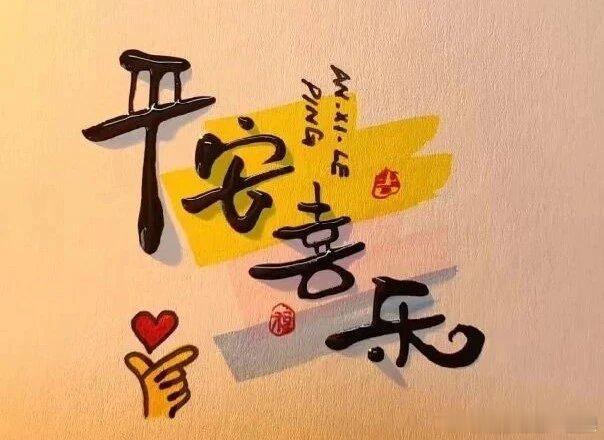 平安喜乐
PING
AN.XI.LE
福